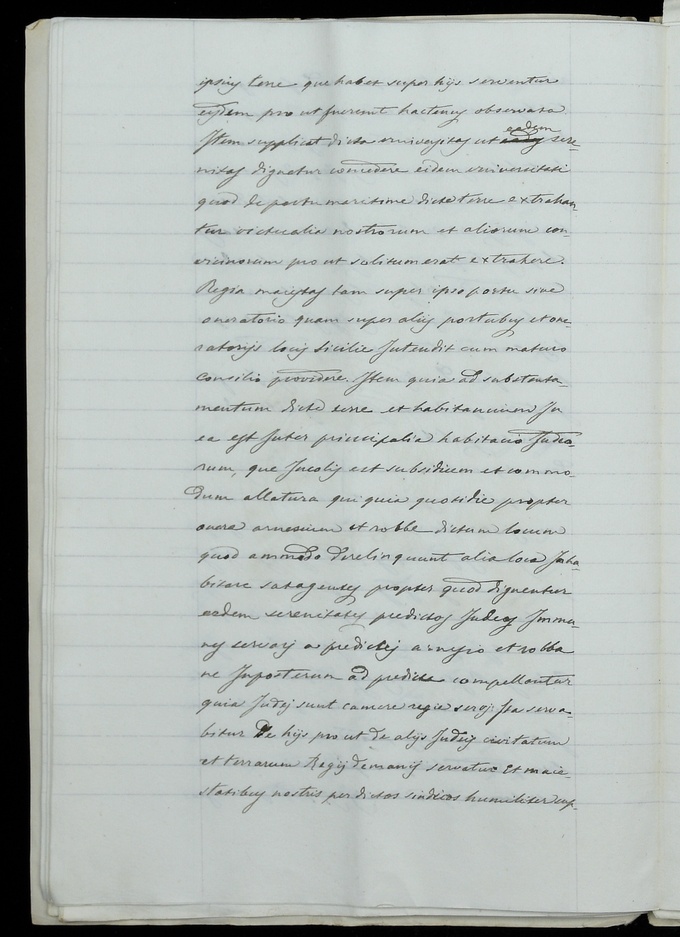 ipsius terre que habet super hijs serventur
eysdem pro ut fuerunt hactenus observata
Item supplicat dicta universitas ut eadem sere-
nitas dignetur concedere eidem universitati
quod de portu maritime dicte terre extrahan-
tur victualia nostrorum et aliorum con-
vicinorum pro ut solitum erat extrahere.
Regia maiestas tam super ipso portu sive
oneratorio quam super alijs portubus et one-
ratorijs locis Sicilie Intendit cum maturo
consilio providere. Item quia ad substenta-
mentum dicte terre et habitancium In
ea est Inter principalia habitacio Judeo-
rum, que Incolis est subsidium et commo-
dum allatura qui quia quotidie propter
onera arnesium et robbe dictum locum
quod ammodo derelinquunt alia loca Inha-
bitare satagentes propter quod dignentur
eedem serenitates predictos Judeos Immu-
nes servari a predictis arnesio et robba
ne Imposterum ad predicta compellantur
quia Judei sunt camere regie servi: Ita serva-
bitur De hijs pro ut de alijs Judeis civitatum
et terrarum Regij demanij servatur Et maie-
statibus nostris per dictos sindicos humiliter sup-